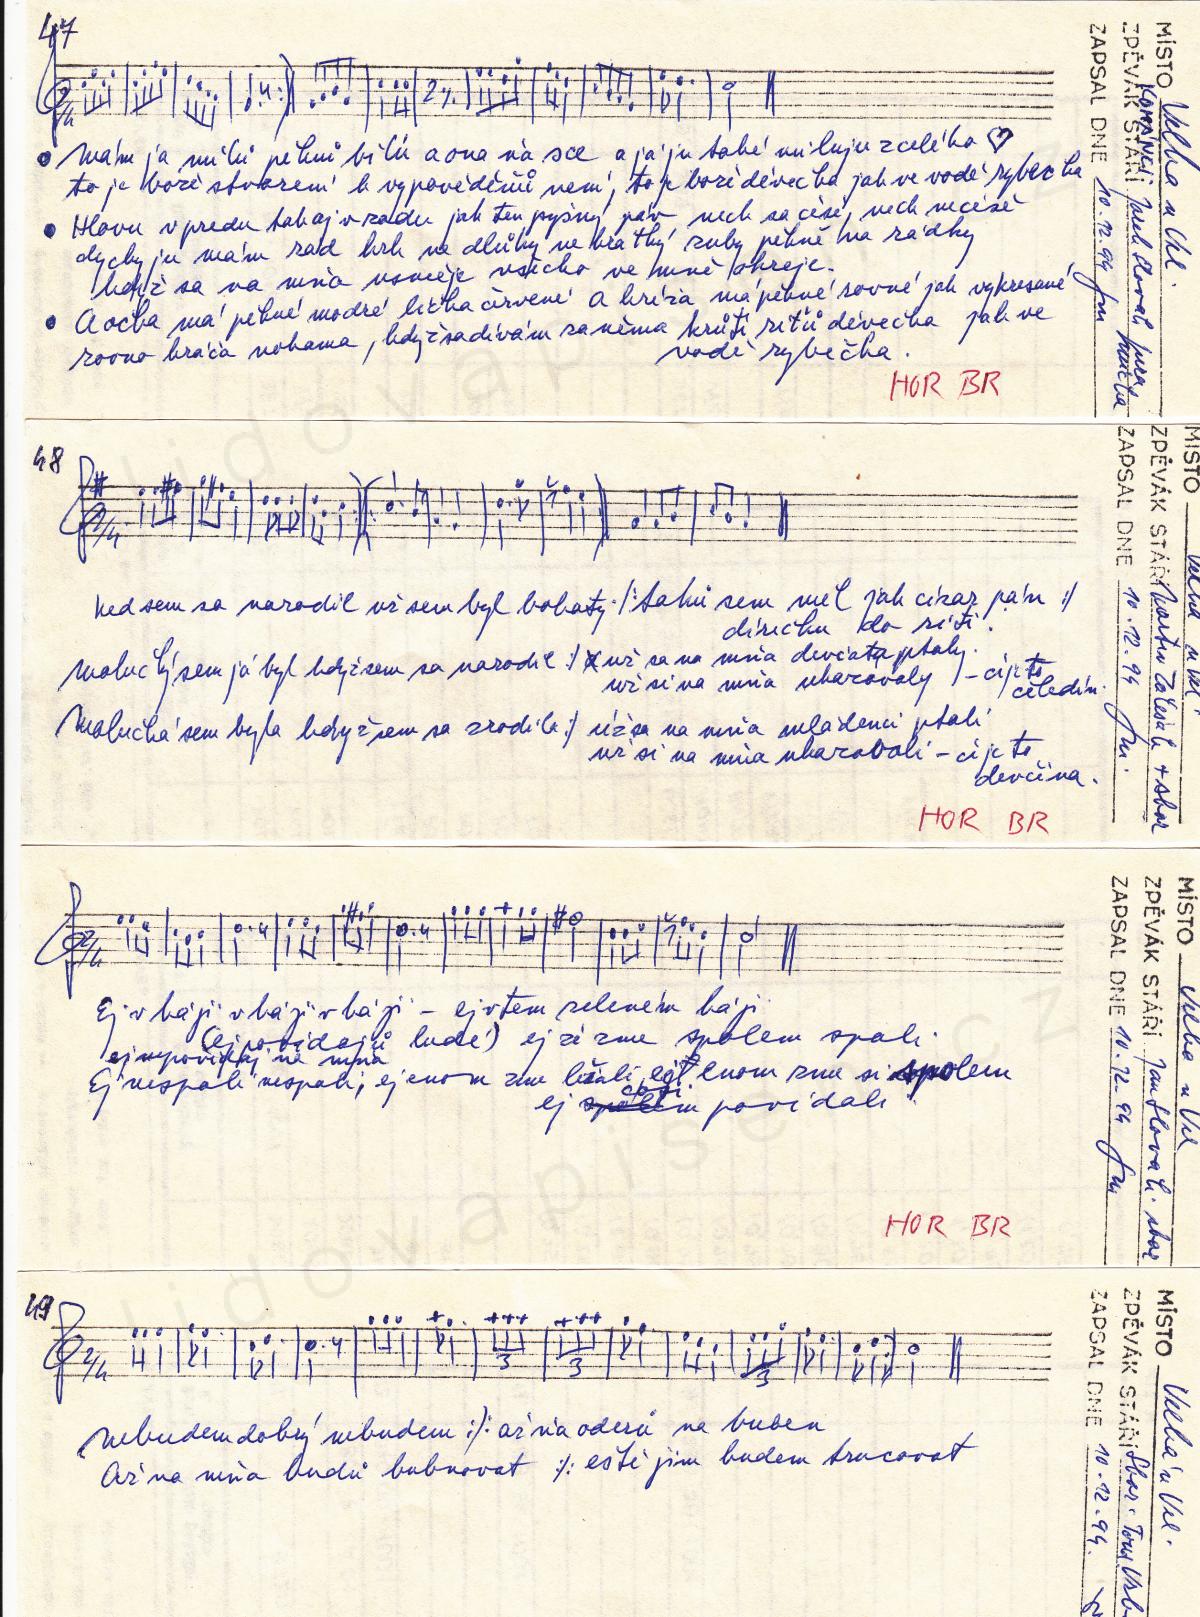 47
Mám ja milú pěknú bílú a ona ňa sce a já ju také miluju z celého
to je boží stvoření k vypovědění není, to je boží děvečka jak ve vodě rybečka
Hlavu vpredu tak aj vzadu jak ten pyšný páv nech sa češe, nech nečeše
dycky ju mám rad krk ne dlúhý ne krátký zuby pěkné na rádky
když sa na mňa usměje všecko ve mně okreje.
A očka má pěkné modré líčka červené a kríža má pěkné rovné jak vykresané
rovno kráčá nohama, když sa dívám za něma krútí ritú děvečka jak ve
vodě rybečka.
HOR BR
MÍSTO Velká n Vel.
ZPĚVÁK STÁŘÍ
ZAPSAL DNE 10.12.94
48
Ked sem sa narodil už sem byl bohatý :/: takú sem měl jak cisar pán :/
dírečku do riti.
Malučký sem já byl když sem sa narodil :/ už sa na mňa děvčata ptaly.
už si na mňa ukazovaly – čí je to
čeledín.
Malučká sem byla když sem sa zrodila :/ už sa na mňa mládenci ptali
už si na mňa ukazovali – čí je to
devčina.
HOR BR
MÍSTO Velká n Vel.
ZPĚVÁK STÁŘÍ Martin Zálešák + sbor
ZAPSAL DNE 10.12.94
Ej v háji v háji v háji – ej v tem zeleném háji
(ej povidajú ludé) ej že zme spolem spali.
ej nepovidaj na mňa
Ej nespali nespali, ej enom zme ležali, ej enom zme si spolem
cosi
ej spolem povidali
HOR BR
MÍSTO Velká n Vel
ZPĚVÁK STÁŘÍ Jan Slovák. sbor
ZAPSAL DNE 10.12.94
49
Nebudem dobrý nebudem :/: až ňa oderú na buben
Až na mňa budú bubnovat :/: eště jim budem trucovat
MÍSTO Velká n Vel.
ZPĚVÁK STÁŘÍ Sbor.
ZAPSAL DNE 10.12.94.
lidovapisen.cz